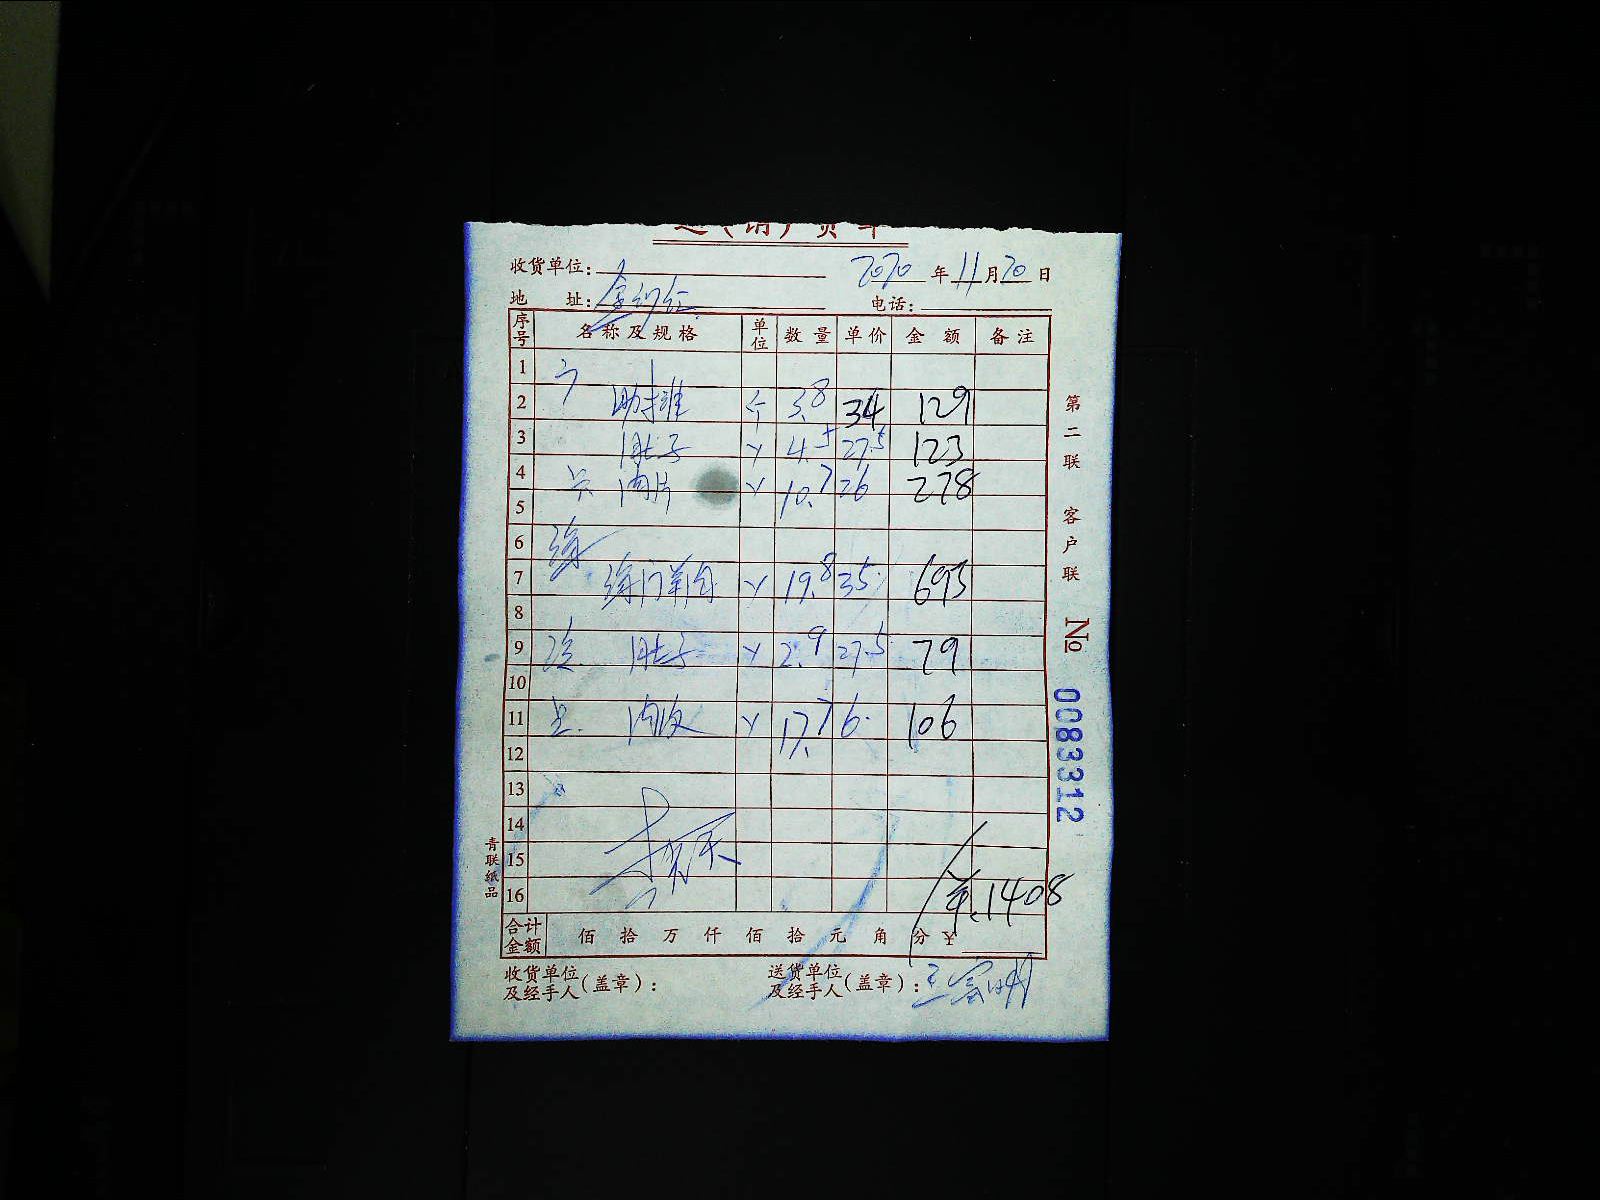 送(销)货单
收货单位: 2020 年 11 月 20 日
地 址: 电话:
序号 名称及规格 单位 数量 单价 金额 备注
1
2 肋排 个 3.8 34 129
3 肚子 4.5 27.5 123
4 肉片 10.7 26 278
5
6
7 35 693
19.8
8
9 肚子 2.9 27.5 79
10
11 17.7 6. 106
12
13
14
15
16 1408
合计金额 佰 拾 万 仟 佰 拾 元 角 分 ¥
收货单位及经手人(盖章): 送货单位及经手人(盖章):
第二联 客户联
No 0083312
青联纸品